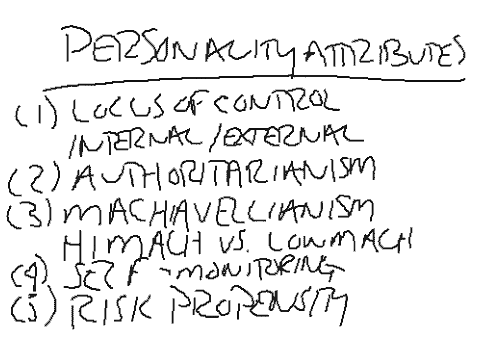 PERSONALITY ATTRIBUTES
(1) LOCUS OF CONTROL
INTERNAL/EXTERNAL
(2) AUTHORITARIANISM
(3) MACHIAVELLIANISM
HI MACH VS. LOW MACH
(4) SELF-MONITORING
(5) RISK PROPENSITY